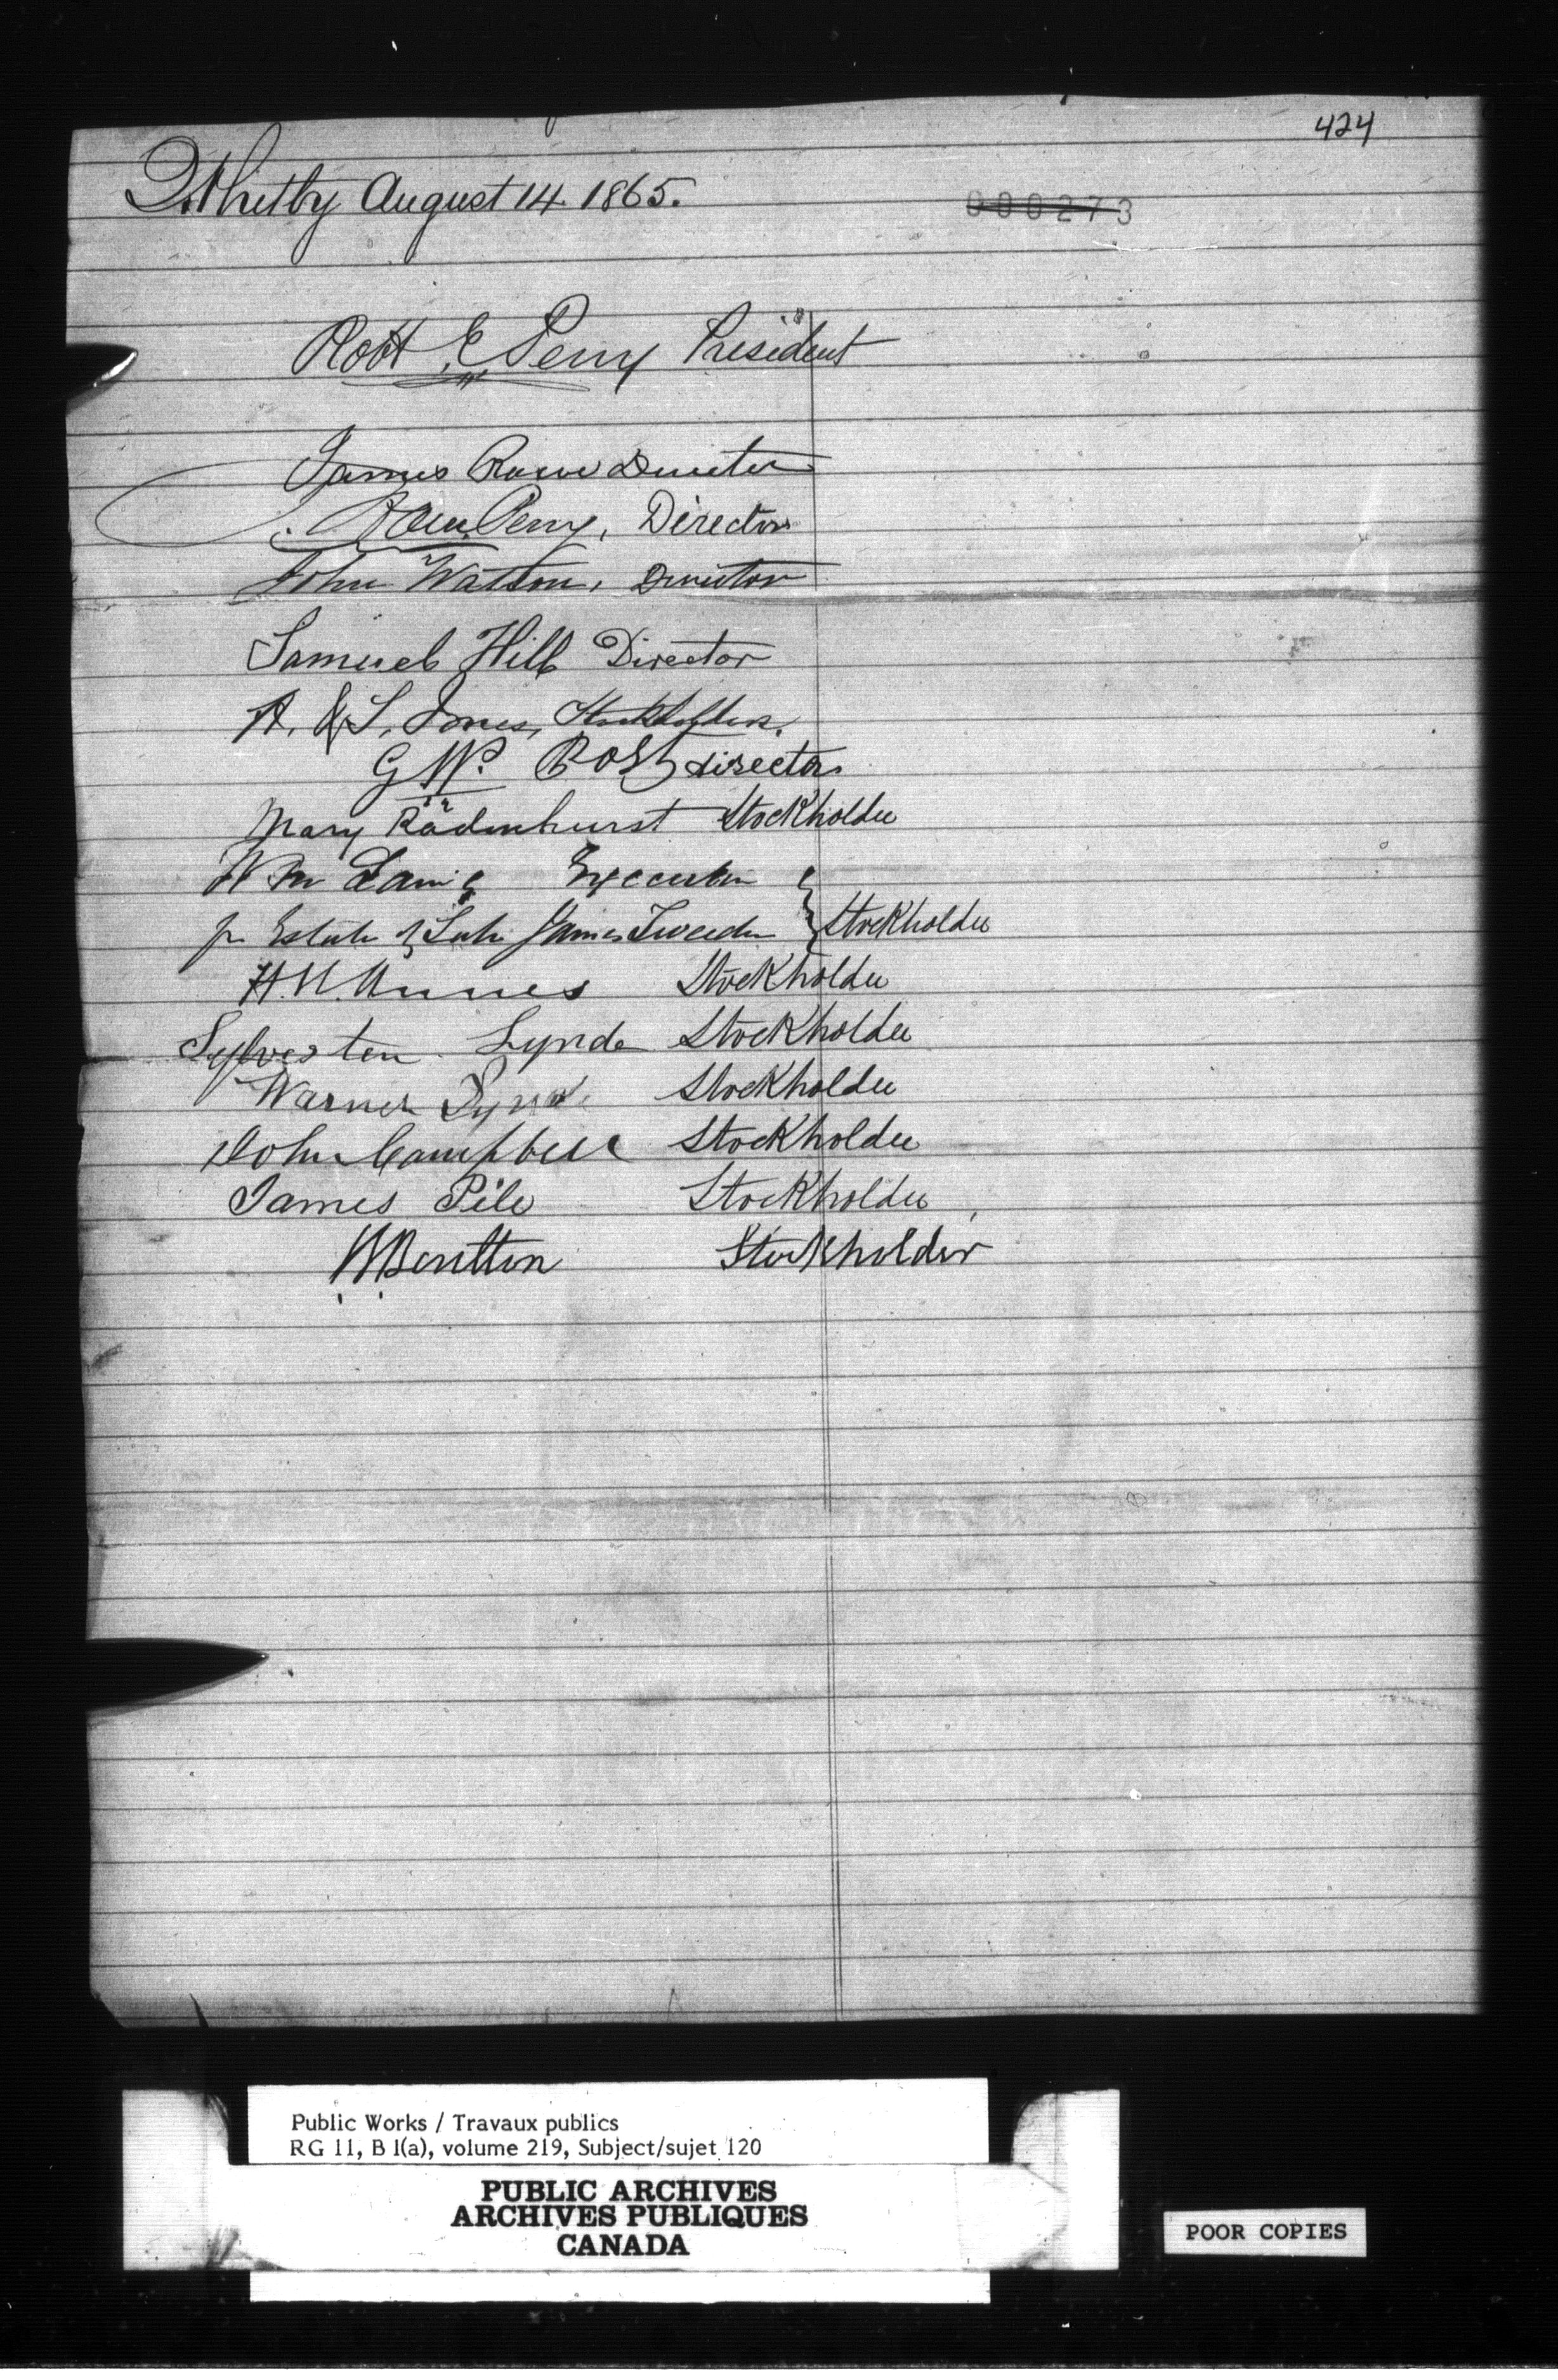 424
Whitby August 14 1865.
000273
Robt E Perry President
James Rowe Director
Perry, Director
John Watson, Director
Samuel Hill Director
A. & S. Jones, Stockholders.
G W. Post director
Mary Radenhurst Stockholder
Wm Executor
pr Estate of Late James Tweedie } Stockholder
Stockholder
Sylvester Lynde Stockholder
Warner Lynde Stockholder
John Campbell Stockholder
James Pile Stockholder
Stockholder
Public Works / Travaux publics
RG 11, B 1(a), volume 219, Subject/sujet 120
PUBLIC ARCHIVES
ARCHIVES PUBLIQUES
CANADA
POOR COPIES